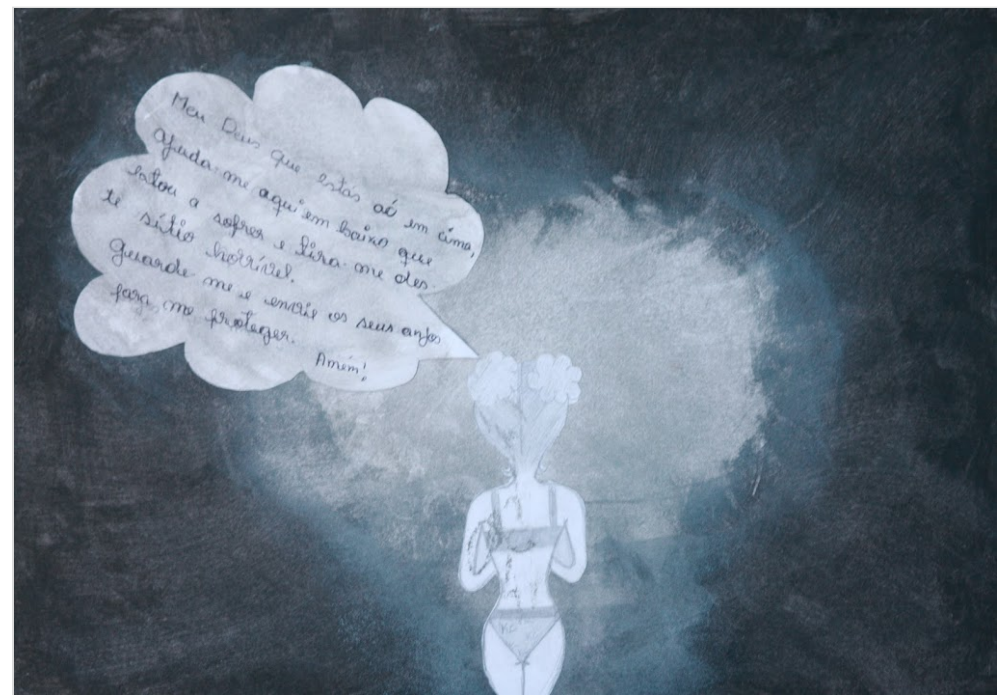 Meu Deus que estás aí em cima,
ajuda-me aqui em baixo que
estou a sofrer e tira-me des-
te sítio horrível.
Guarde-me e envie os seus anjos
para me proteger.
Amém!